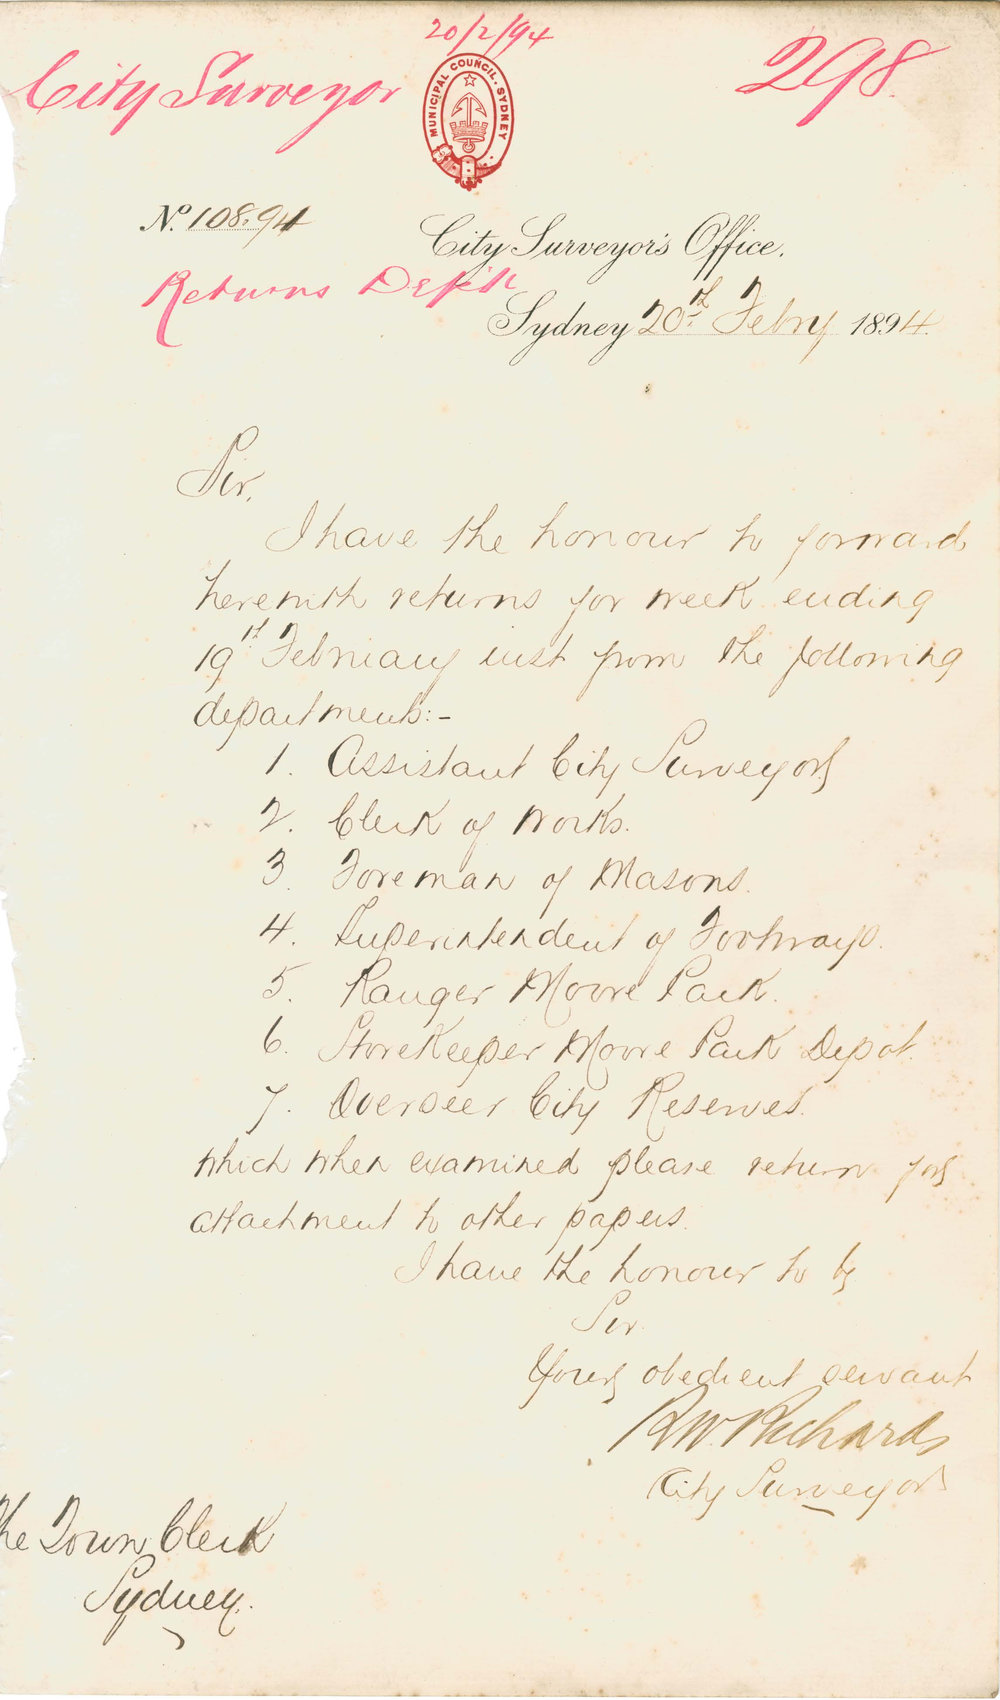 20/2/94
City Surveyor
298.
MUNICIPAL COUNCIL. SYDNEY
No. 108.94
City Surveyor's Office.
Returns Dep't
Sydney 20th Febry 1894.
Sir,
I have the honour to forward
herewith returns for week ending
19th February inst from the following
departments:-
1. Assistant City Surveyor
2. Clerk of Works.
3. Foreman of Masons.
4. Superintendent of Footways.
5. Ranger Moore Park.
6. Storekeeper Moore Park Depot.
7. Overseer City Reserves.
which when examined please return for
attachment to other papers.
I have the honour to be
Sir
Your obedient servant
R W. Richards
City Surveyor
The Town Clerk
Sydney.